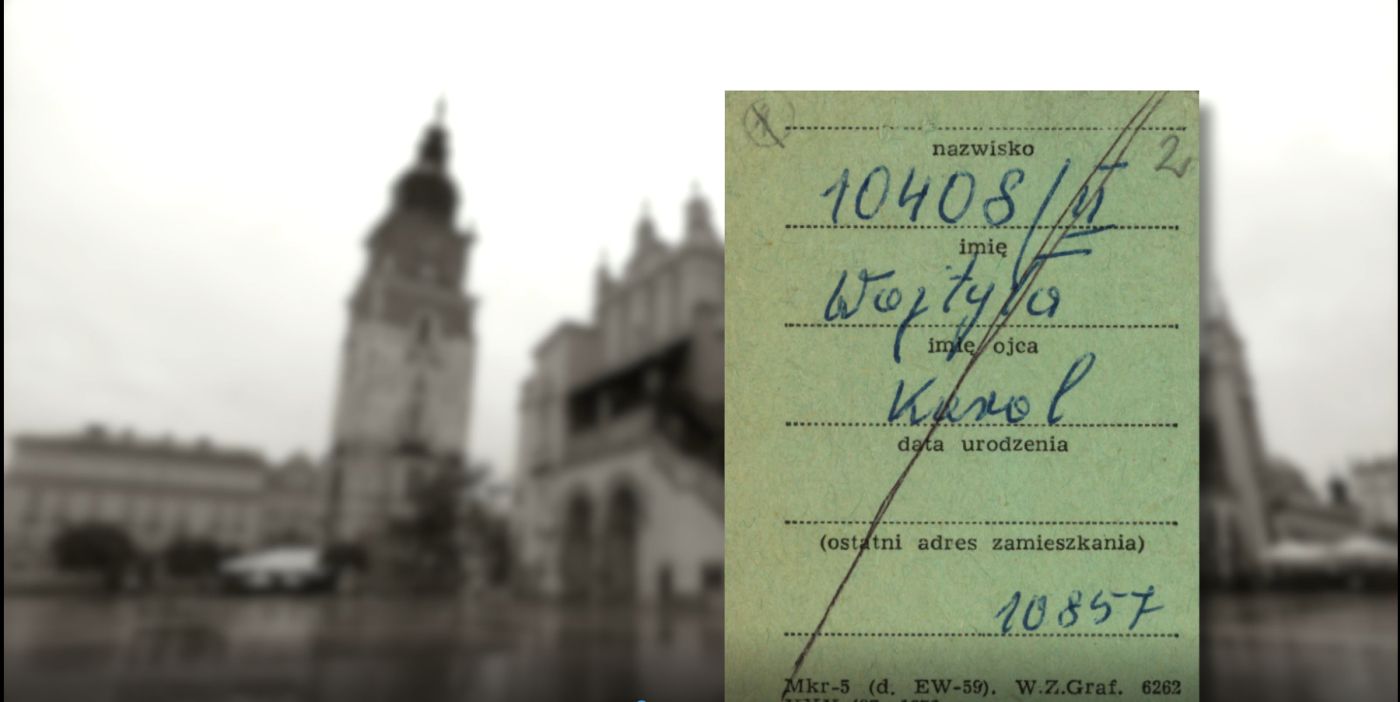 2
nazwisko
10408/II
imię
Wojtyła
imię ojca
Karol
data urodzenia
(ostatni adres zamieszkania)
10857
Mkr-5 (d. EW-59). W.Z.Graf. 6262